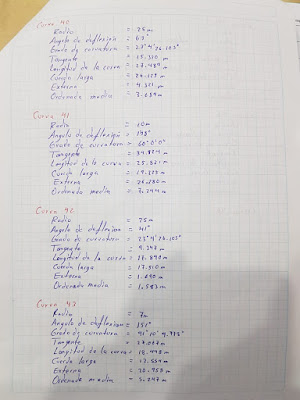 Curva 40
Radio = 25 m
Angulo de deflexión = 63°
Grado de curvatura = 23°4'26.103"
Tangente = 15.320 m
Longitud de la curva = 27.489 m
Cuerda larga = 26.125 m
Externa = 4.321 m
Ordenada media = 3.684 m
Curva 41
Radio = 10 m
Angulo de deflexión = 148°
Grado de curvatura = 60°0'0"
Tangente = 34.874 m
Longitud de la curva = 25.821 m
Cuerda larga = 19.225 m
Externa = 26.280 m
Ordenada media = 7.244 m
Curva 42
Radio = 25 m
Angulo de deflexión = 41°
Grado de curvatura = 23°4'26.103"
Tangente = 9.348 m
Longitud de la curva = 17.890 m
Cuerda larga = 17.510 m
Externa = 1.690 m
Ordenada media = 1.583 m
Curva 43
Radio = 7 m
Angulo de deflexión = 151°
Grado de curvatura =
Tangente = 27.067 m
Longitud de la curva = 18.448 m
Cuerda larga = 13.554 m
Externa = 20.958 m
Ordenada media = 5.247 m